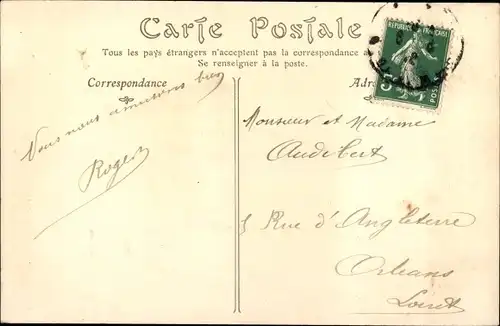 Carte Postale
Tous les pays étrangers n'acceptent pas la correspondance a
Se renseigner à la poste.
Correspondance
Adr
REPUBLIQUE FRANÇAISE
5c
POSTES
Nous nous amusons bien
Roger
Monsieur et Madame
Audibert
Rue d'Angleterre
Orléans
Loiret